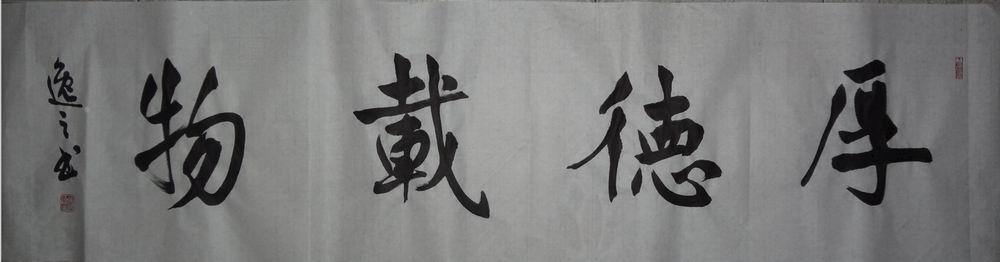 厚德載物
逸之书